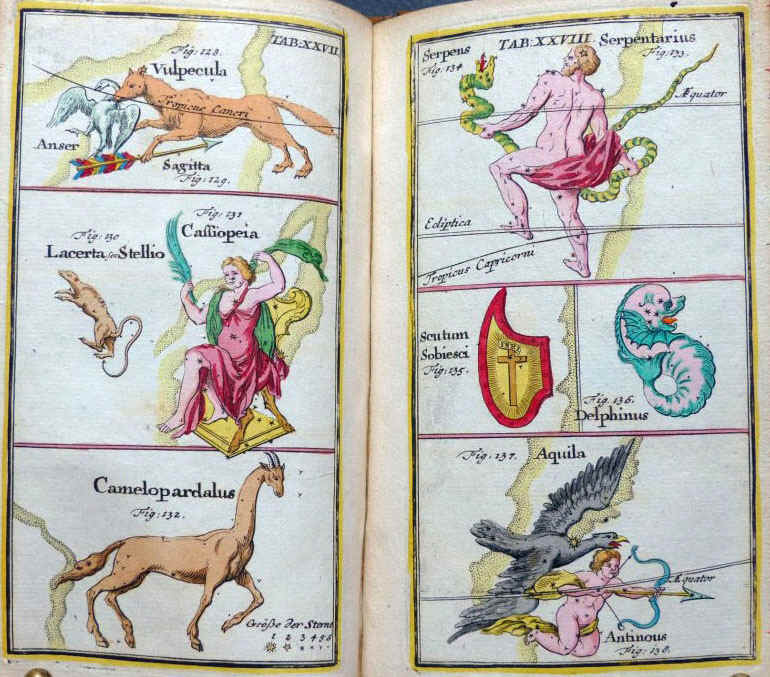 TAB:XXVII
Fig: 128.
Vulpecula
Tropicus Cancri
Anser
Sagitta
Fig: 129.
Fig: 130
Lacerta seu Stellio
Fig: 131
Cassiopeia
Camelopardalus
Fig: 132.
Größe der Sterne
1 2 3 4 5 6
TAB:XXVIII.
Serpens
Fig: 134
Serpentarius
Fig: 133.
Æquator
Ecliptica
Tropicus Capricorni
Scutum
Sobiesci
Fig: 135.
Fig. 136.
Delphinus
Fig: 137.
Aquila
Æquator
Antinous
Fig: 138.